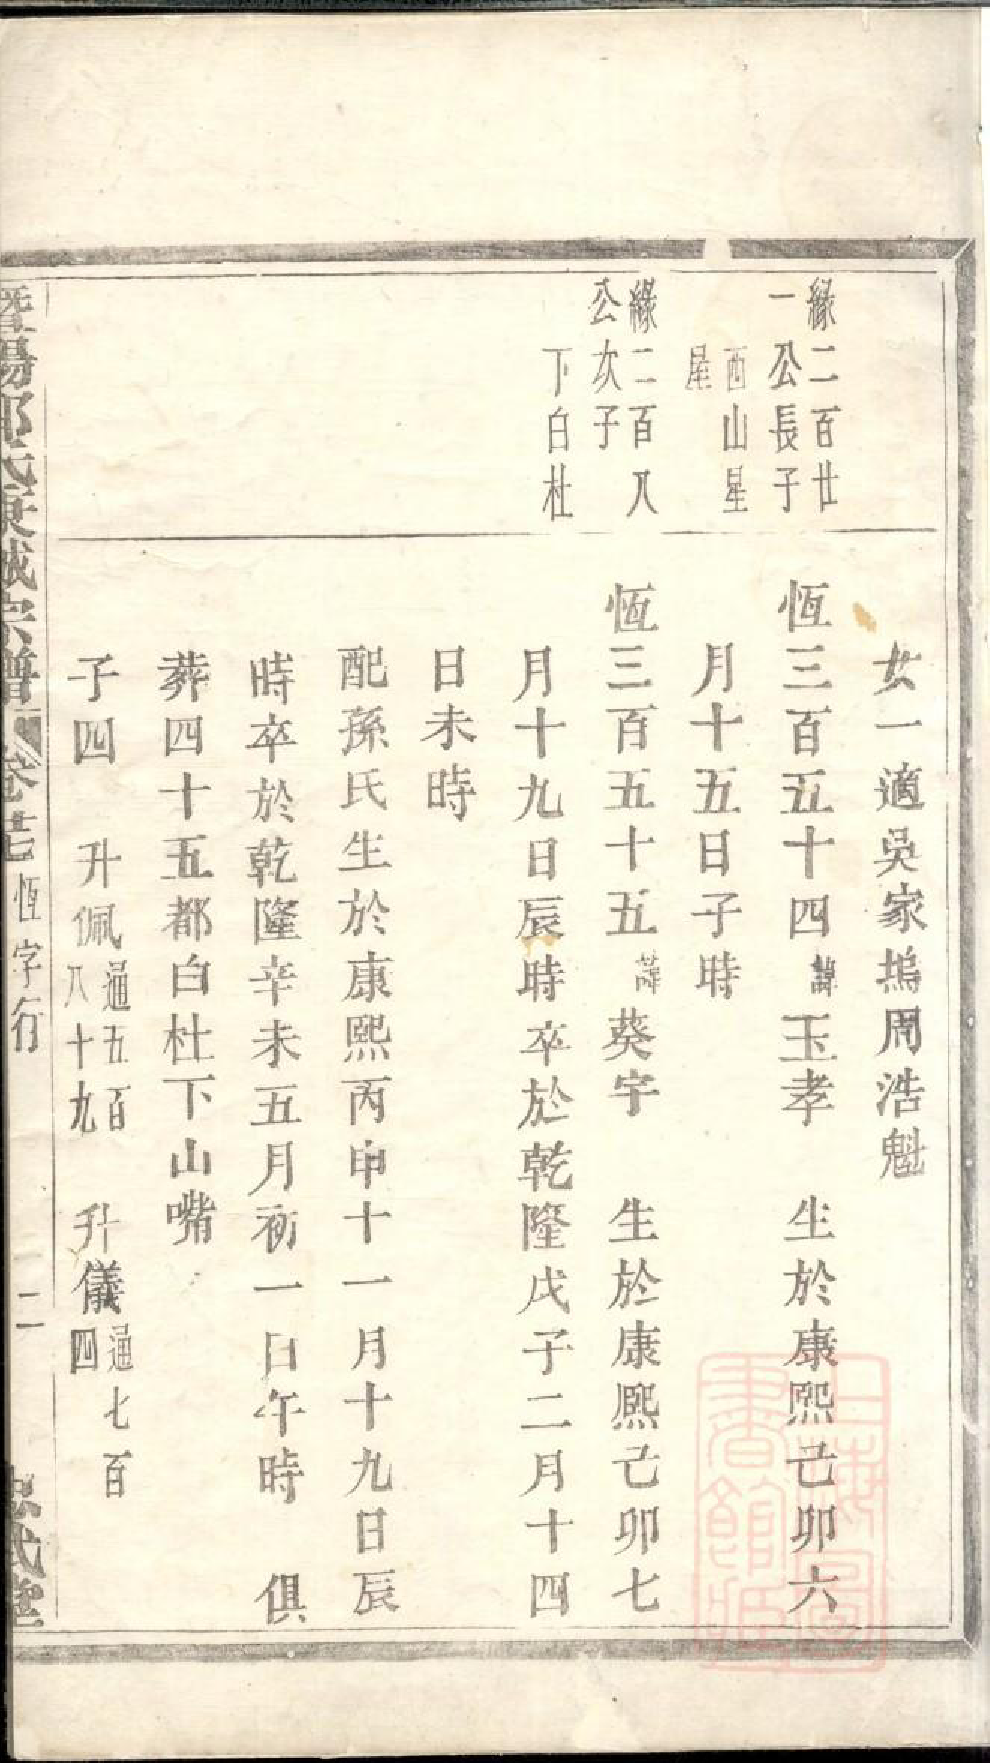 緣二百廿
一公長子
西山星
屋
緣二百八
公次子
下白杜
女一適吳家塢周浩魁
恆三百五十四諱玉孝 生於康熙己卯六
月十五日子時
恆三百五十五諱葵宇 生於康熙己卯七
月十九日辰時卒於乾隆戊子二月十四
日未時
配孫氏生於康熙丙申十一月十九日辰
時卒於乾隆辛未五月初一日午時 俱
葬四十五都白杜下山嘴
子四 升佩通五百八十九 升儀通七百四
暨陽邱氏東城宗譜 卷廿七 恆字行 二 忠武堂
上海圖書館藏